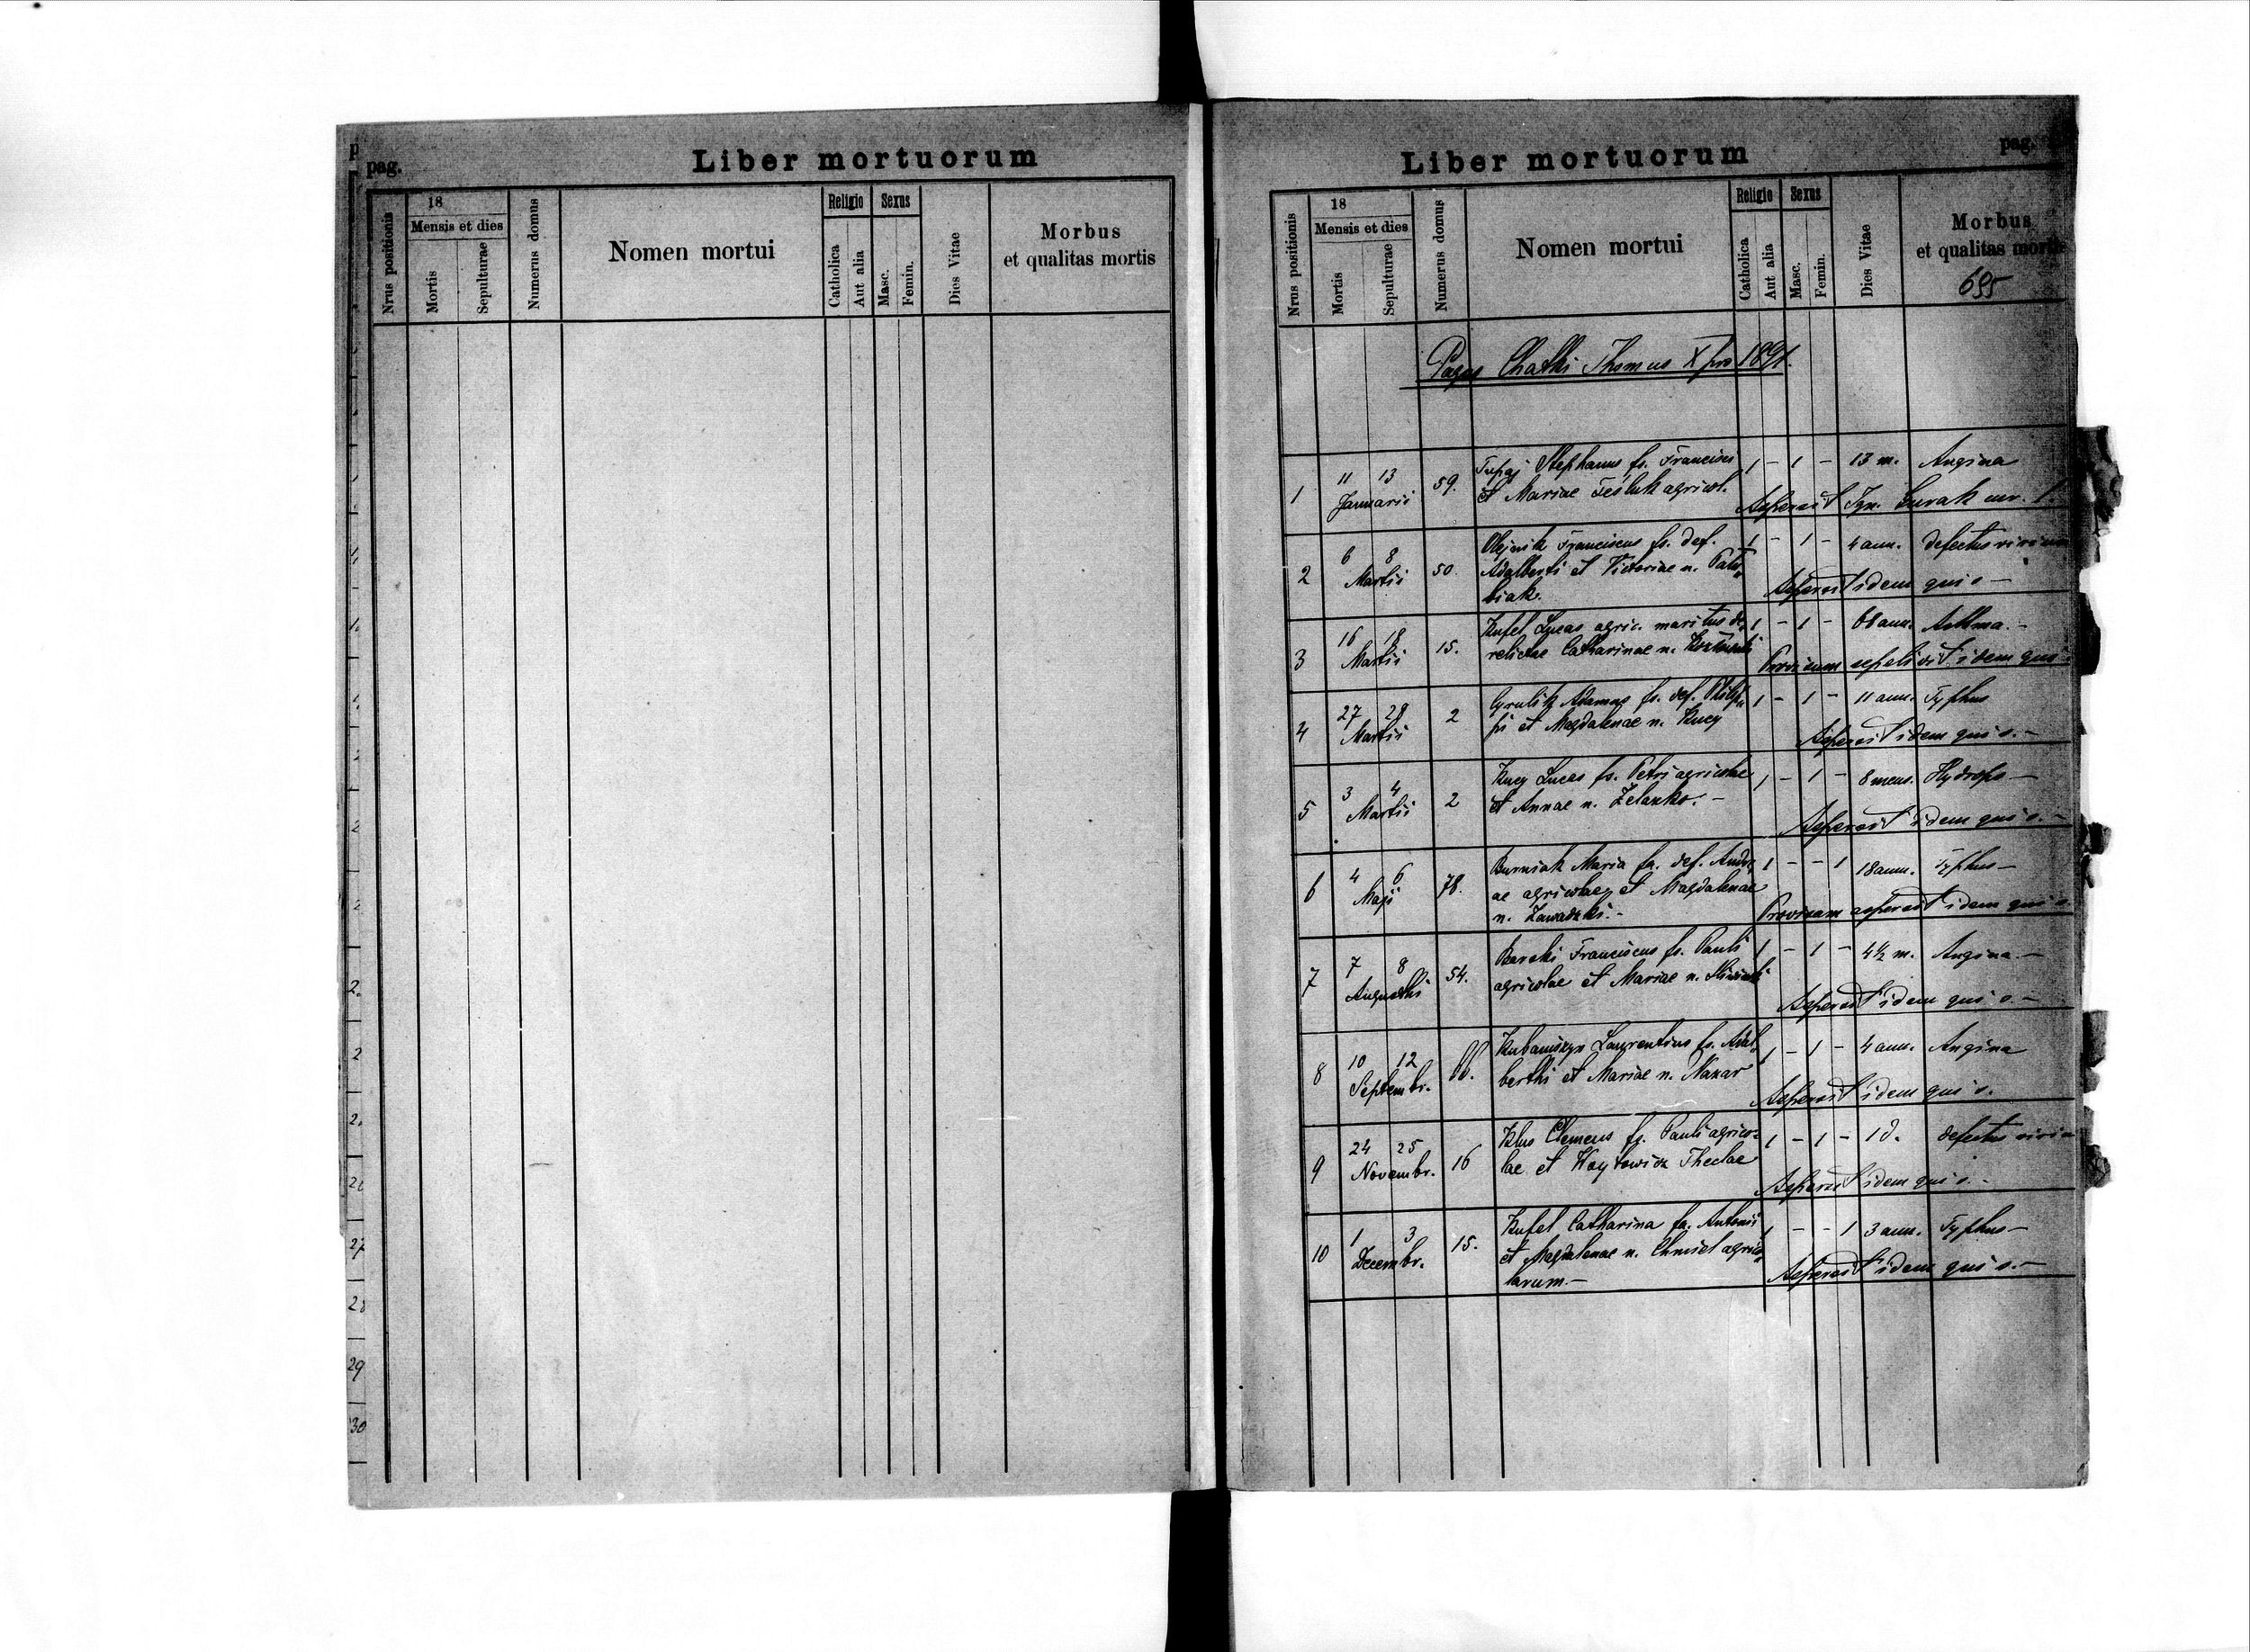 pag.
Liber mortuorum
Nrus positionis
18
Mensis et dies
Mortis
Sepulturae
Numerus domus
Nomen mortui
Religio
Catholica
Aut alia
Sexus
Masc.
Femin.
Dies Vitae
Morbus
et qualitas mortis
29
30
Liber mortuorum
pag.
Nrus positionis
18
Mensis et dies
Mortis
Sepulturae
Numerus domus
Nomen mortui
Religio
Catholica
Aut alia
Sexus
Masc.
Femin.
Dies Vitae
Morbus
et qualitas mortis
695
Pagus Chatki Thomus X pro 1891.
1 11 13 Januarii 59. Tupaj Stephanus fs. Francisci 1 - 1 - 13 m. Angina
et Mariae Tesluk agricol.
Aspersit Ign. Gurak cur. l.
2 6 8 Martii 50. Olejnik Franciscus fs. def. 1 - 1 - 4 ann. defectus virium
Adalberti et Victoriae n.
biak.
Aspersit idem qui s. -
3 16 18 Martii 15. Kufel Lucas agric. maritus de, 1 - 1 - 68 ann. Asthma. -
relictae Catharinae n.
Provisum sepelivit idem qui
4 27 29 Martii 2 Cyrulik Adamus fs. def. Philip, 1 - 1 - 11 ann. Typhus
pi et Magdalenae n. Kucy
Aspersit idem qui s. -
5 3 4 Martii 2 Kucy Lucas fs. Petri agricolae 1 - 1 - 8 mens. Hydrops -
et Annae n. Zelazko. -
Aspersit idem qui s. -
6 4 6 Maji 78. Burniak Maria fa. def. Andre, 1 - - 1 18 ann. Typhus -
ae agricolae, et Magdalenae
n. Zawadzki. -
Provisam aspersit idem qui s.
7 7 8 Augusti 54. Barski Franciscus fs. Pauli 1 - 1 - 4½ m. Angina. -
agricolae et Mariae n.
Aspersit idem qui s. -
8 10 12 Septembr. Laurentius fs. Adal, 1 - 1 - 4 ann. Angina
berthi et Mariae n. Nazar
Aspersit idem qui s.
9 24 25 Novembr. 16 Klus Clemens fs. Pauli agrico- 1 - 1 - 1 d. defectus
lae et Woytowicz Theclae
Aspersit idem qui s. -
10 1 3 Decembr. 15. Kufel Catharina fa. Antonii 1 - - 1 3 ann. Typhus -
et Magdalenae n. Chmiel agrico,
larum. -
Aspersit idem qui s. -